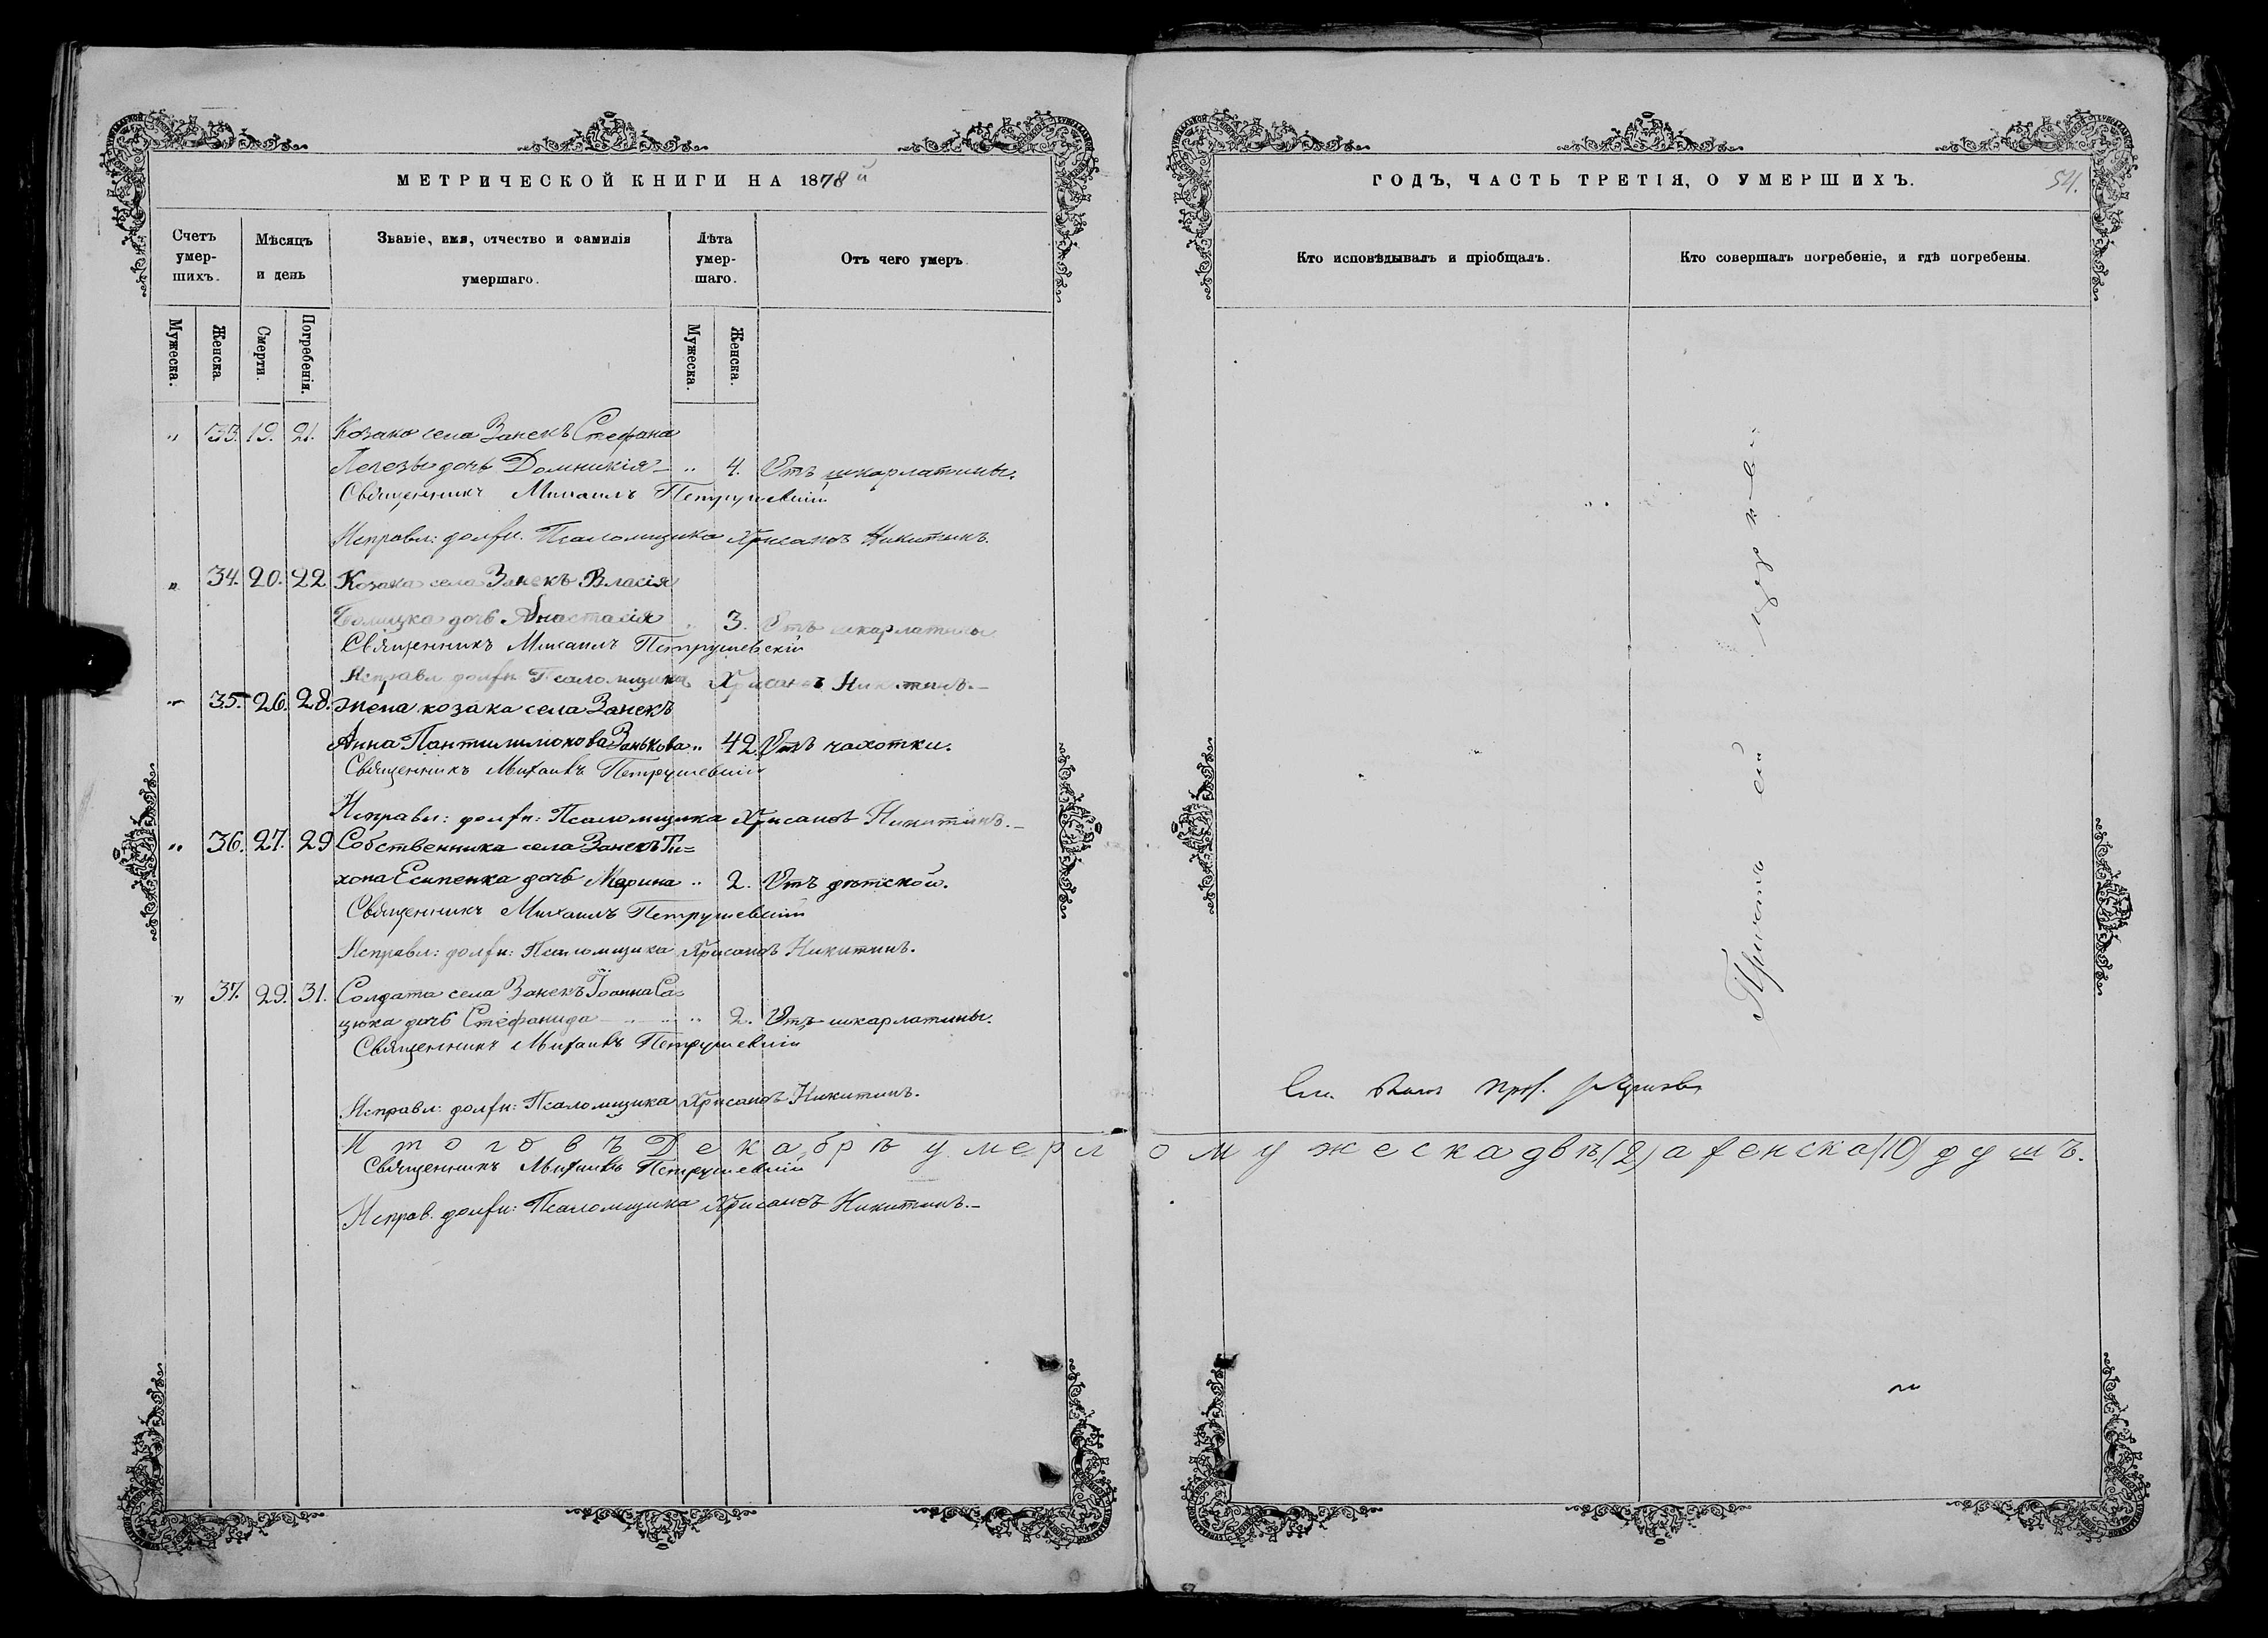 МЕТРИЧЕСКОЙ КНИГИ НА 1878й
Счетъ умер-шихъ.
Мѣсяцъ и день
Званіе, имя, отчество и фамилія умершаго.
Лѣта умер-шаго.
Отъ чего умеръ.
Мужеска. Женска. Смерти. Погребенія. Мужеска. Женска.
„ 33. 19. 21. Козака села Занекъ Стефана
дочь Домникія „ 4. Отъ шкарлатины.
Священникъ Михаилъ Петрушевскій
Исправл: должн. Псаломщика Хрисанѳъ Никитинъ.
„ 34. 20. 22 Козака села Занекъ Власія
дочь Анастасія „ 3. Отъ шкарлатины
Священникъ Михаилъ Петрушевскій
Исправл должн Псаломщика Хрисанѳъ Никитинъ.
„ 35. 26. 28. Жена козака села Занекъ
Анна Пантилимонова Занькова „ 42 Отъ чахотки.
Священникъ Михаилъ Петрушевскій
Исправл: должн: Псаломщика Хрисанѳъ Никитинъ.
„ 36. 27. 29 Собственника села Занекъ Ти=
хона Есипенка дочь Марина „ 2. Отъ дѣтской.
Священникъ Михаилъ Петрушевскій
Исправл: должн: Псаломщика Хрисанѳъ Никитинъ.
„ 37. 29. 31. Солдата села Занекъ Іоанна Са=
цюка дочь Стефанида „ 2. Отъ шкарлатины.
Священникъ Михаилъ Петрушевскій
Исправл: должн: Псаломщика Хрисанѳъ Никитинъ.
Итого въ Декабрѣ умерло мужеска двѣ (2) а женска (10) душъ.
Священникъ Михаилъ Петрушевскій
Исправ. должн: Псаломщика Хрисанѳъ Никитинъ.
ГОДЪ, ЧАСТЬ ТРЕТІЯ, О УМЕРШИХЪ.
54.
Кто исповѣдывалъ и пріобщалъ.
Кто совершалъ погребеніе, и гдѣ погребены.
Причтъ сей церкви.